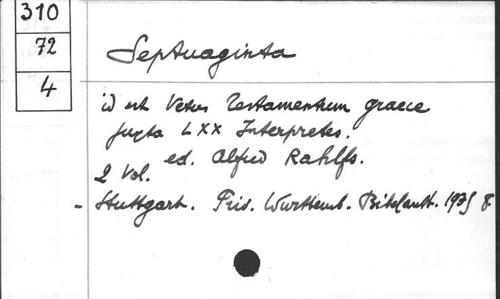 310
72
4
Septuaginta
id est Vetus Testamentum graece
juxta LXX Interpretes.
ed. Alfred Rahlfs.
2 Vol.
- Stuttgart. Priv. Württemb. Bibelanst.